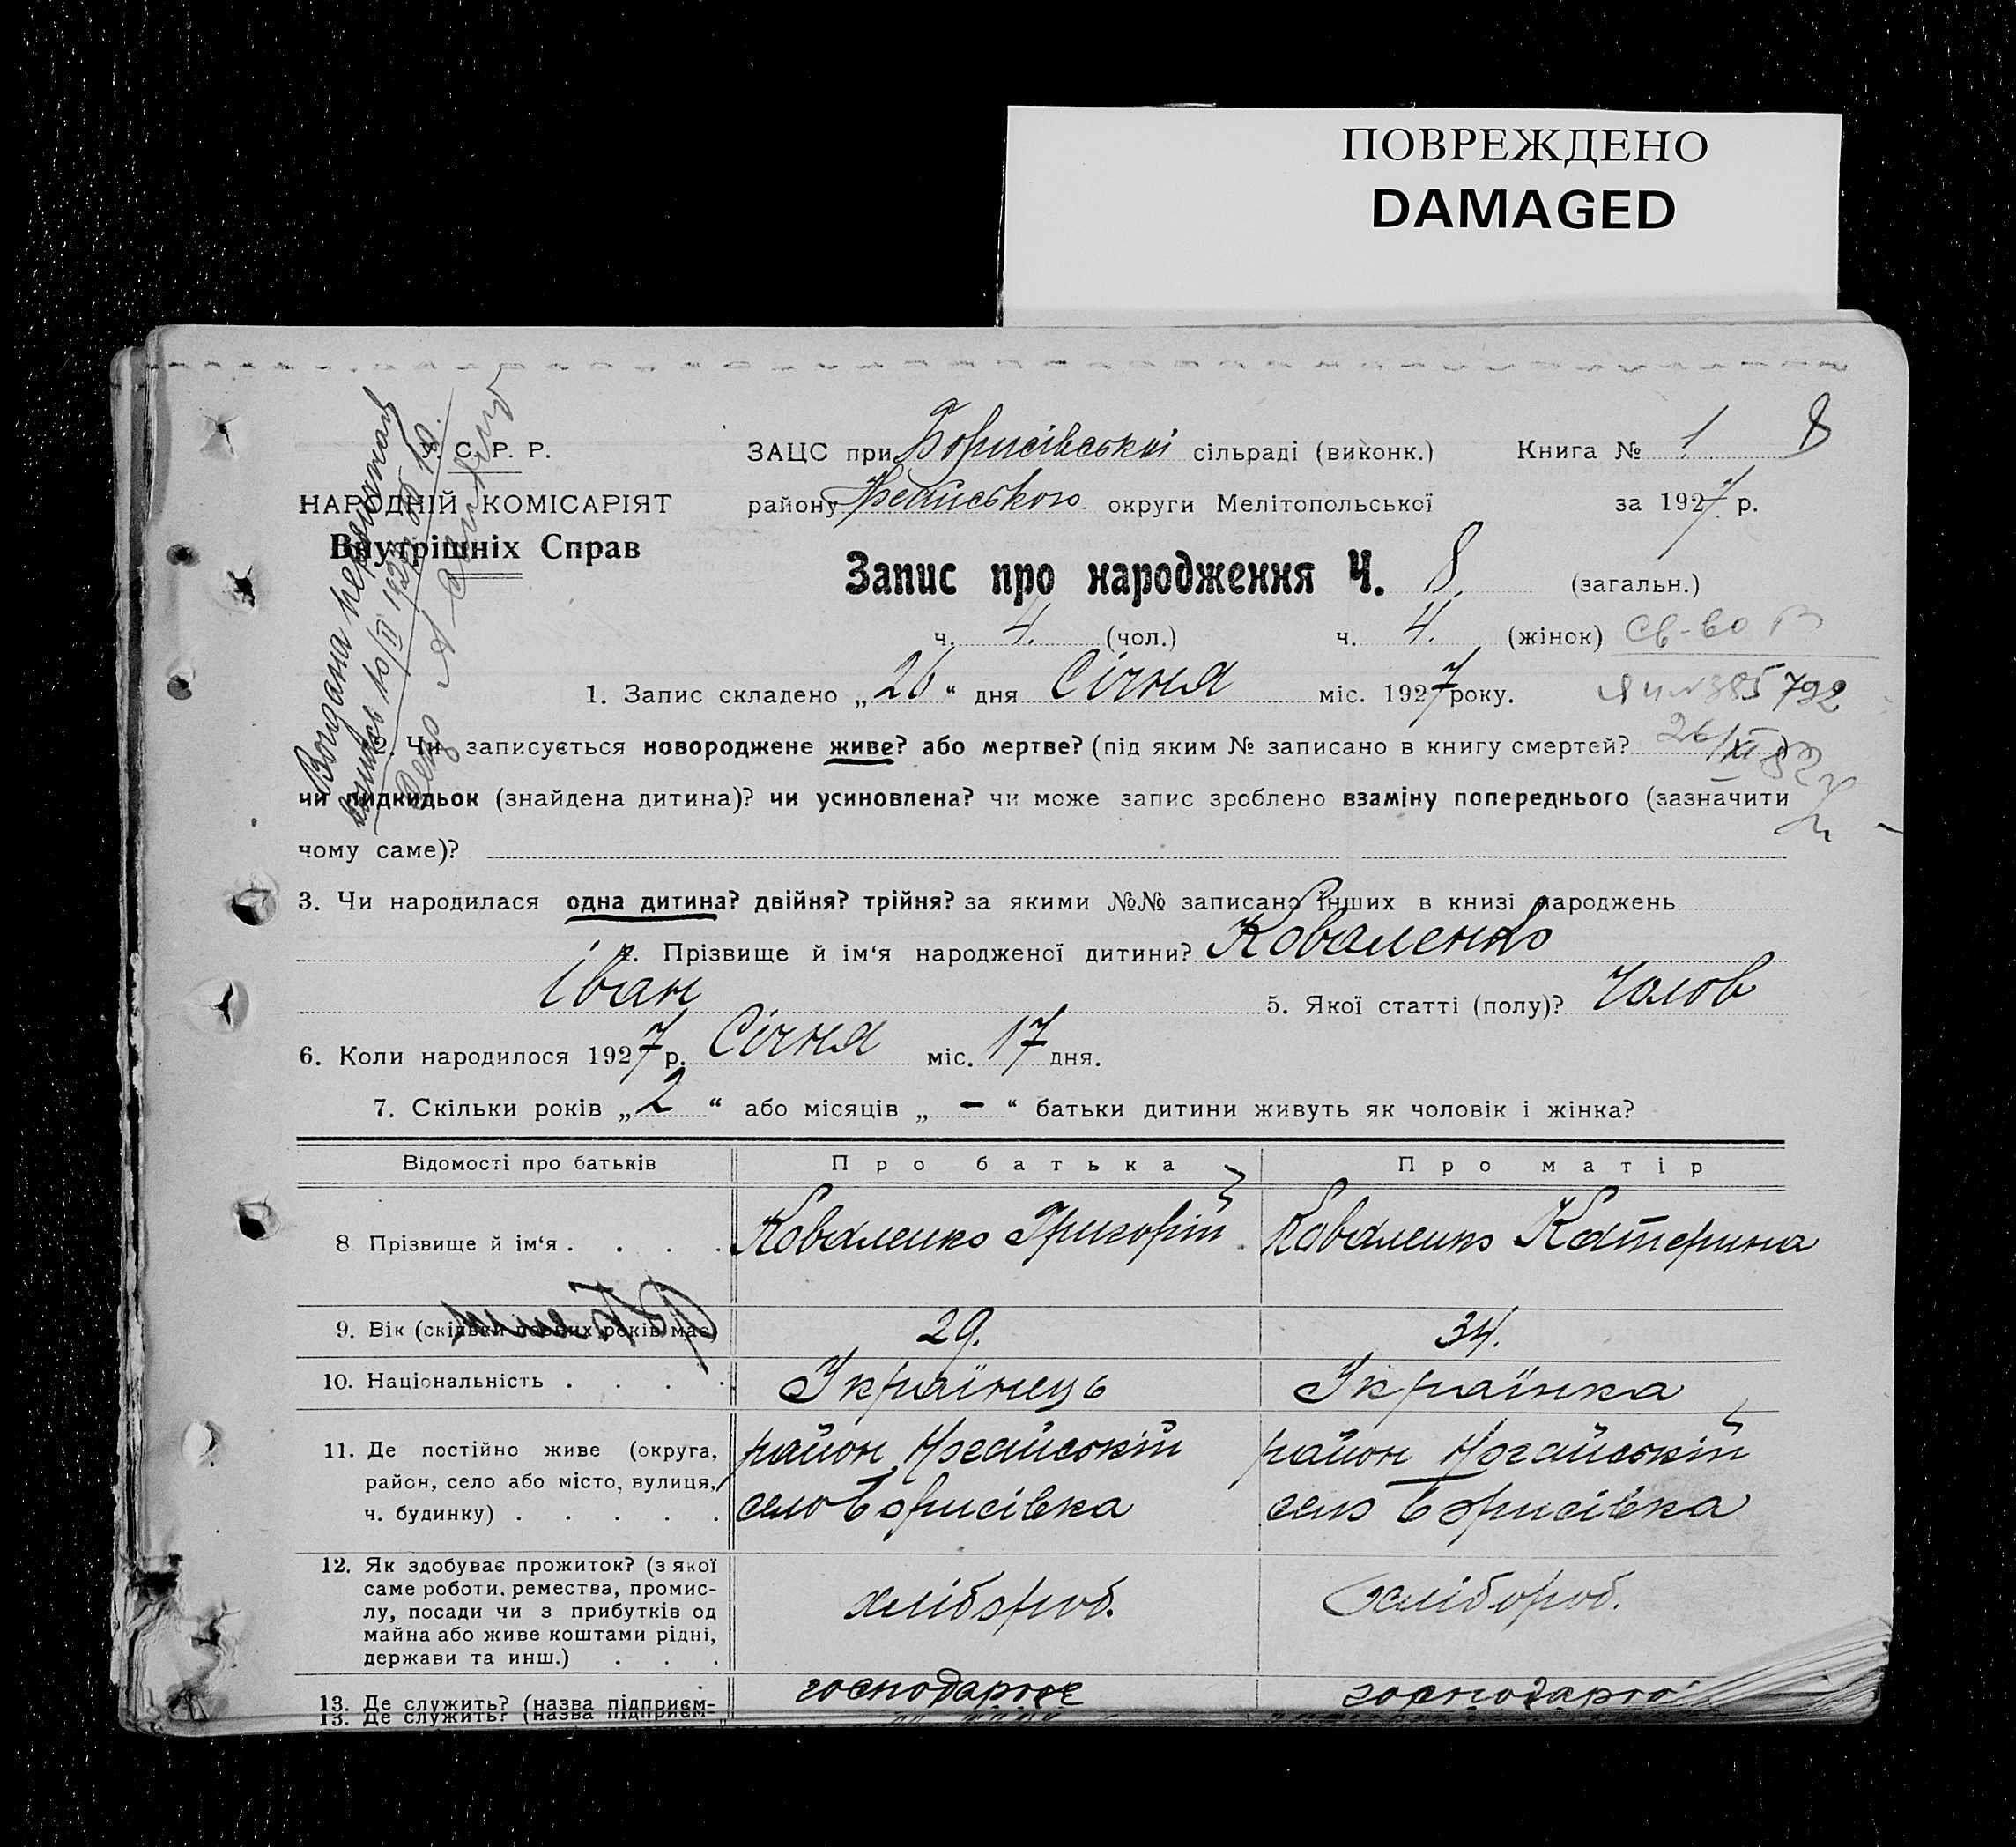 ПОВРЕЖДЕНО
DAMAGED
У. С. Р. Р.
НАРОДНІЙ КОМІСАРІЯТ
Внутрішніх Справ
ЗАЦС при Борисівській сільраді (виконк.) Книга № 1 8
району округи Мелітопольської за 1927 р.
Запис про народження Ч. 8 (загальн.)
ч. 4. (чол.) ч. 4. (жінок) Св-во
1. Запис складено „26“ дня Січня міс. 1927 року.
385792
Чи записується новороджене живе? або мертве? (під яким № записано в книгу смертей?
26/XI 82
чи підкидьок (знайдена дитина)? чи усиновлена? чи може запис зроблено взаміну попереднього (зазначити
чому саме)?
3. Чи народилася одна дитина? двійня? трійня? за якими №№ записано інших в книзі народжень
4. Прізвище й ім‘я народженої дитини? Коваленко
Іван 5. Якої статті (полу)? Чолов
6. Коли народилося 1927 р. Січня міс. 17 дня.
7. Скільки років „2“ або місяців „-“ батьки дитини живуть як чоловік і жінка?
Відомості про батьків Про батька Про матір
8 Прізвище й ім‘я . . . . Коваленко Григорій Коваленко Катерина
9. Вік (скільки повних років має) 29. 34.
10. Національність . . . . Українець Українка
11. Де постійно живе (округа, район Ногайській район Ногайській
район, село або місто, вулиця, село Борисівка село Борисівка
ч. будинку) . . . . .
12. Як здобуває прожиток? (з якої
саме роботи, ремества, промис- хлібороб. Хлібороб.
лу, посади чи з прибутків од
майна або живе коштами рідні,
держави та инш.) . . .
13. Де служить? (назва підприєм-
13. Де служить? (назва підприєм-